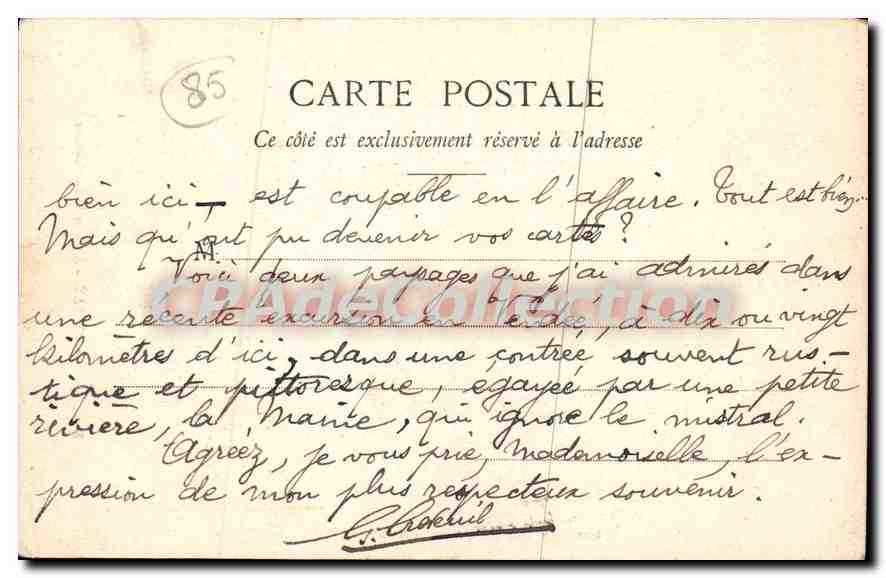 85
CARTE POSTALE
Ce côté est exclusivement réservé à l'adresse
bien ici, est coupable en l'affaire. Tout est bien.
Mais qu'ont pu devenir vos cartes?
M.
Voici deux paysages que j'ai admirés dans
une récente excursion en Vendée, à dix ou vingt
kilomètres d'ici, dans une contrée souvent rus-
tique et pittoresque, égayée par une petite
rivière, la Maine, qui ignore le mistral.
Agréez, je vous prie, Mademoiselle, l'ex-
pression de mon plus respectueux souvenir.
G.
CPAdeCollection